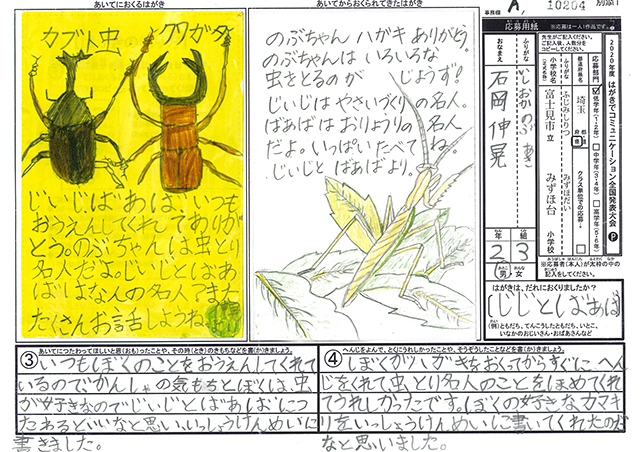 あいてにおくるはがき
カブト虫
クワガタ
じいじ、ばあば、いつも
おうえんしてくれてありが
とう。のぶちゃんは虫とり
名人だよ。じいじとばあ
ばはなんの名人?また
たくさんお話しようね。
あいてからおくられてきたはがき
のぶちゃん ハガキ ありがとう。
のぶちゃんは いろいろな
虫をとるのが じょうず!
じいじは やさいづくりの名人。
ばあばは おりょうりの名人
だよ。いっぱい たべてね。
じいじと ばあばより。
事務様
A,
10204
別添1
応募用紙
※応募は一人1作品です。
2020年度 はがきでコミュニケーション全国発表大会
応募部門
低学年(1・2年)
中学年(3・4年)
高学年(5・6年)
埼玉
ふじみしりつ
みずほだい
富士見市立
みずほ台
小学校
クラス単位での応募
ふりがな
いしおか のぶあき
おなまえ
石岡伸晃
2年
3組
男
女
※応募者(本人)が太枠の中の
記入をしてください。
はがきは、だれにおくりましたか?
(じいじとばあば)
(例)ともだち、てんこうしたともだち、いとこ、
いなかのおじいさん・おばあさんなど
③ あいてにつたわってほしいと思(おも)ったことや、その時(とき)のきもちなどを書(か)きましょう。
いつもぼくのことをおうえんしてくれて
いるのでかんしゃの気もちとぼくは、虫
が好きなのでじいじとばあばにつ
たわるといいなと思い、いっしょうけんめいに
書きました。
④ へんじをよんで、とくにうれしかったことや、そうぞうしたことなどを書(か)きましょう。
ぼくがハガキをおくってからすぐにへん
じをくれて虫とり名人のことをほめてくれ
てうれしかったです。ぼくの好きなカマキ
リをいっしょうけんめいに書いてくれたのだ
なと思いました。